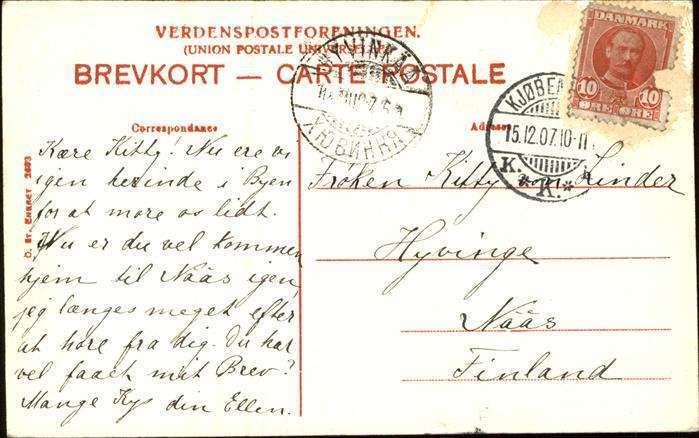 VERDENSPOSTFORENINGEN.
(UNION POSTALE UNIVERSELLE)
BREVKORT — CARTE POSTALE
DANMARK
10 10
ØRE ØRE
HYVINKÄÄ
ХЮВИНКЯ
KJØBENH
15.12.07.10-11
K. * K. *
Correspondance
Adresse
Kære Kitty! Nu ere vi
igen herinde i Byen
for at more os lidt.
Nu er du vel kommen
hjem til Nääs igen,
jeg længes meget efter
at höre fra dig. Du har
vel faaet mit Brev?
Mange Kys din Ellen.
Fröken Kitty von Linder
Hyvinge
Nääs
Finland